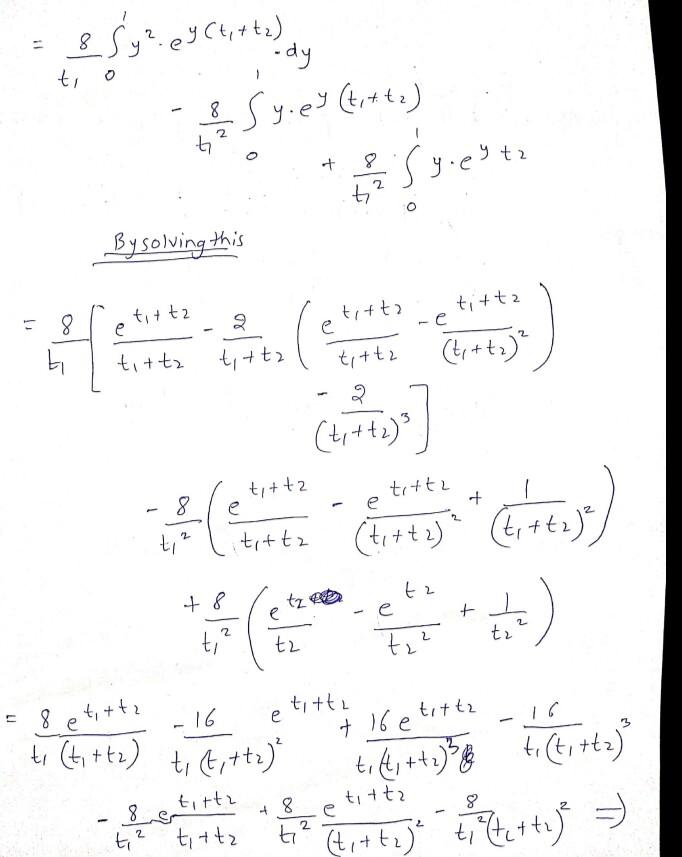 = 8/t₁ ∫₀¹ y². e^{y(t₁+t₂)} . dy
- 8/t₁² ∫₀¹ y.e^{y(t₁+t₂)}
+ 8/t₁² ∫₀¹ y.e^{yt₂}
By solving this
= 8/t₁ [ e^{t₁+t₂}/(t₁+t₂) - 2/(t₁+t₂) ( e^{t₁+t₂}/(t₁+t₂) - e^{t₁+t₂}/(t₁+t₂)² )
- 2/(t₁+t₂)³ ]
- 8/t₁² ( e^{t₁+t₂}/(t₁+t₂) - e^{t₁+t₂}/(t₁+t₂)² + 1/(t₁+t₂)² )
+ 8/t₁² ( e^{t₂}/t₂ - e^{t₂}/t₂² + 1/t₂² )
= 8 e^{t₁+t₂}/t₁(t₁+t₂) - 16/t₁(t₁+t₂)² e^{t₁+t₂} + 16 e^{t₁+t₂}/t₁(t₁+t₂)³ - 16/t₁(t₁+t₂)³
- 8/t₁² e^{t₁+t₂}/(t₁+t₂) + 8/t₁² e^{t₁+t₂}/(t₁+t₂)² - 8/t₁²(t₁+t₂)² ⇒